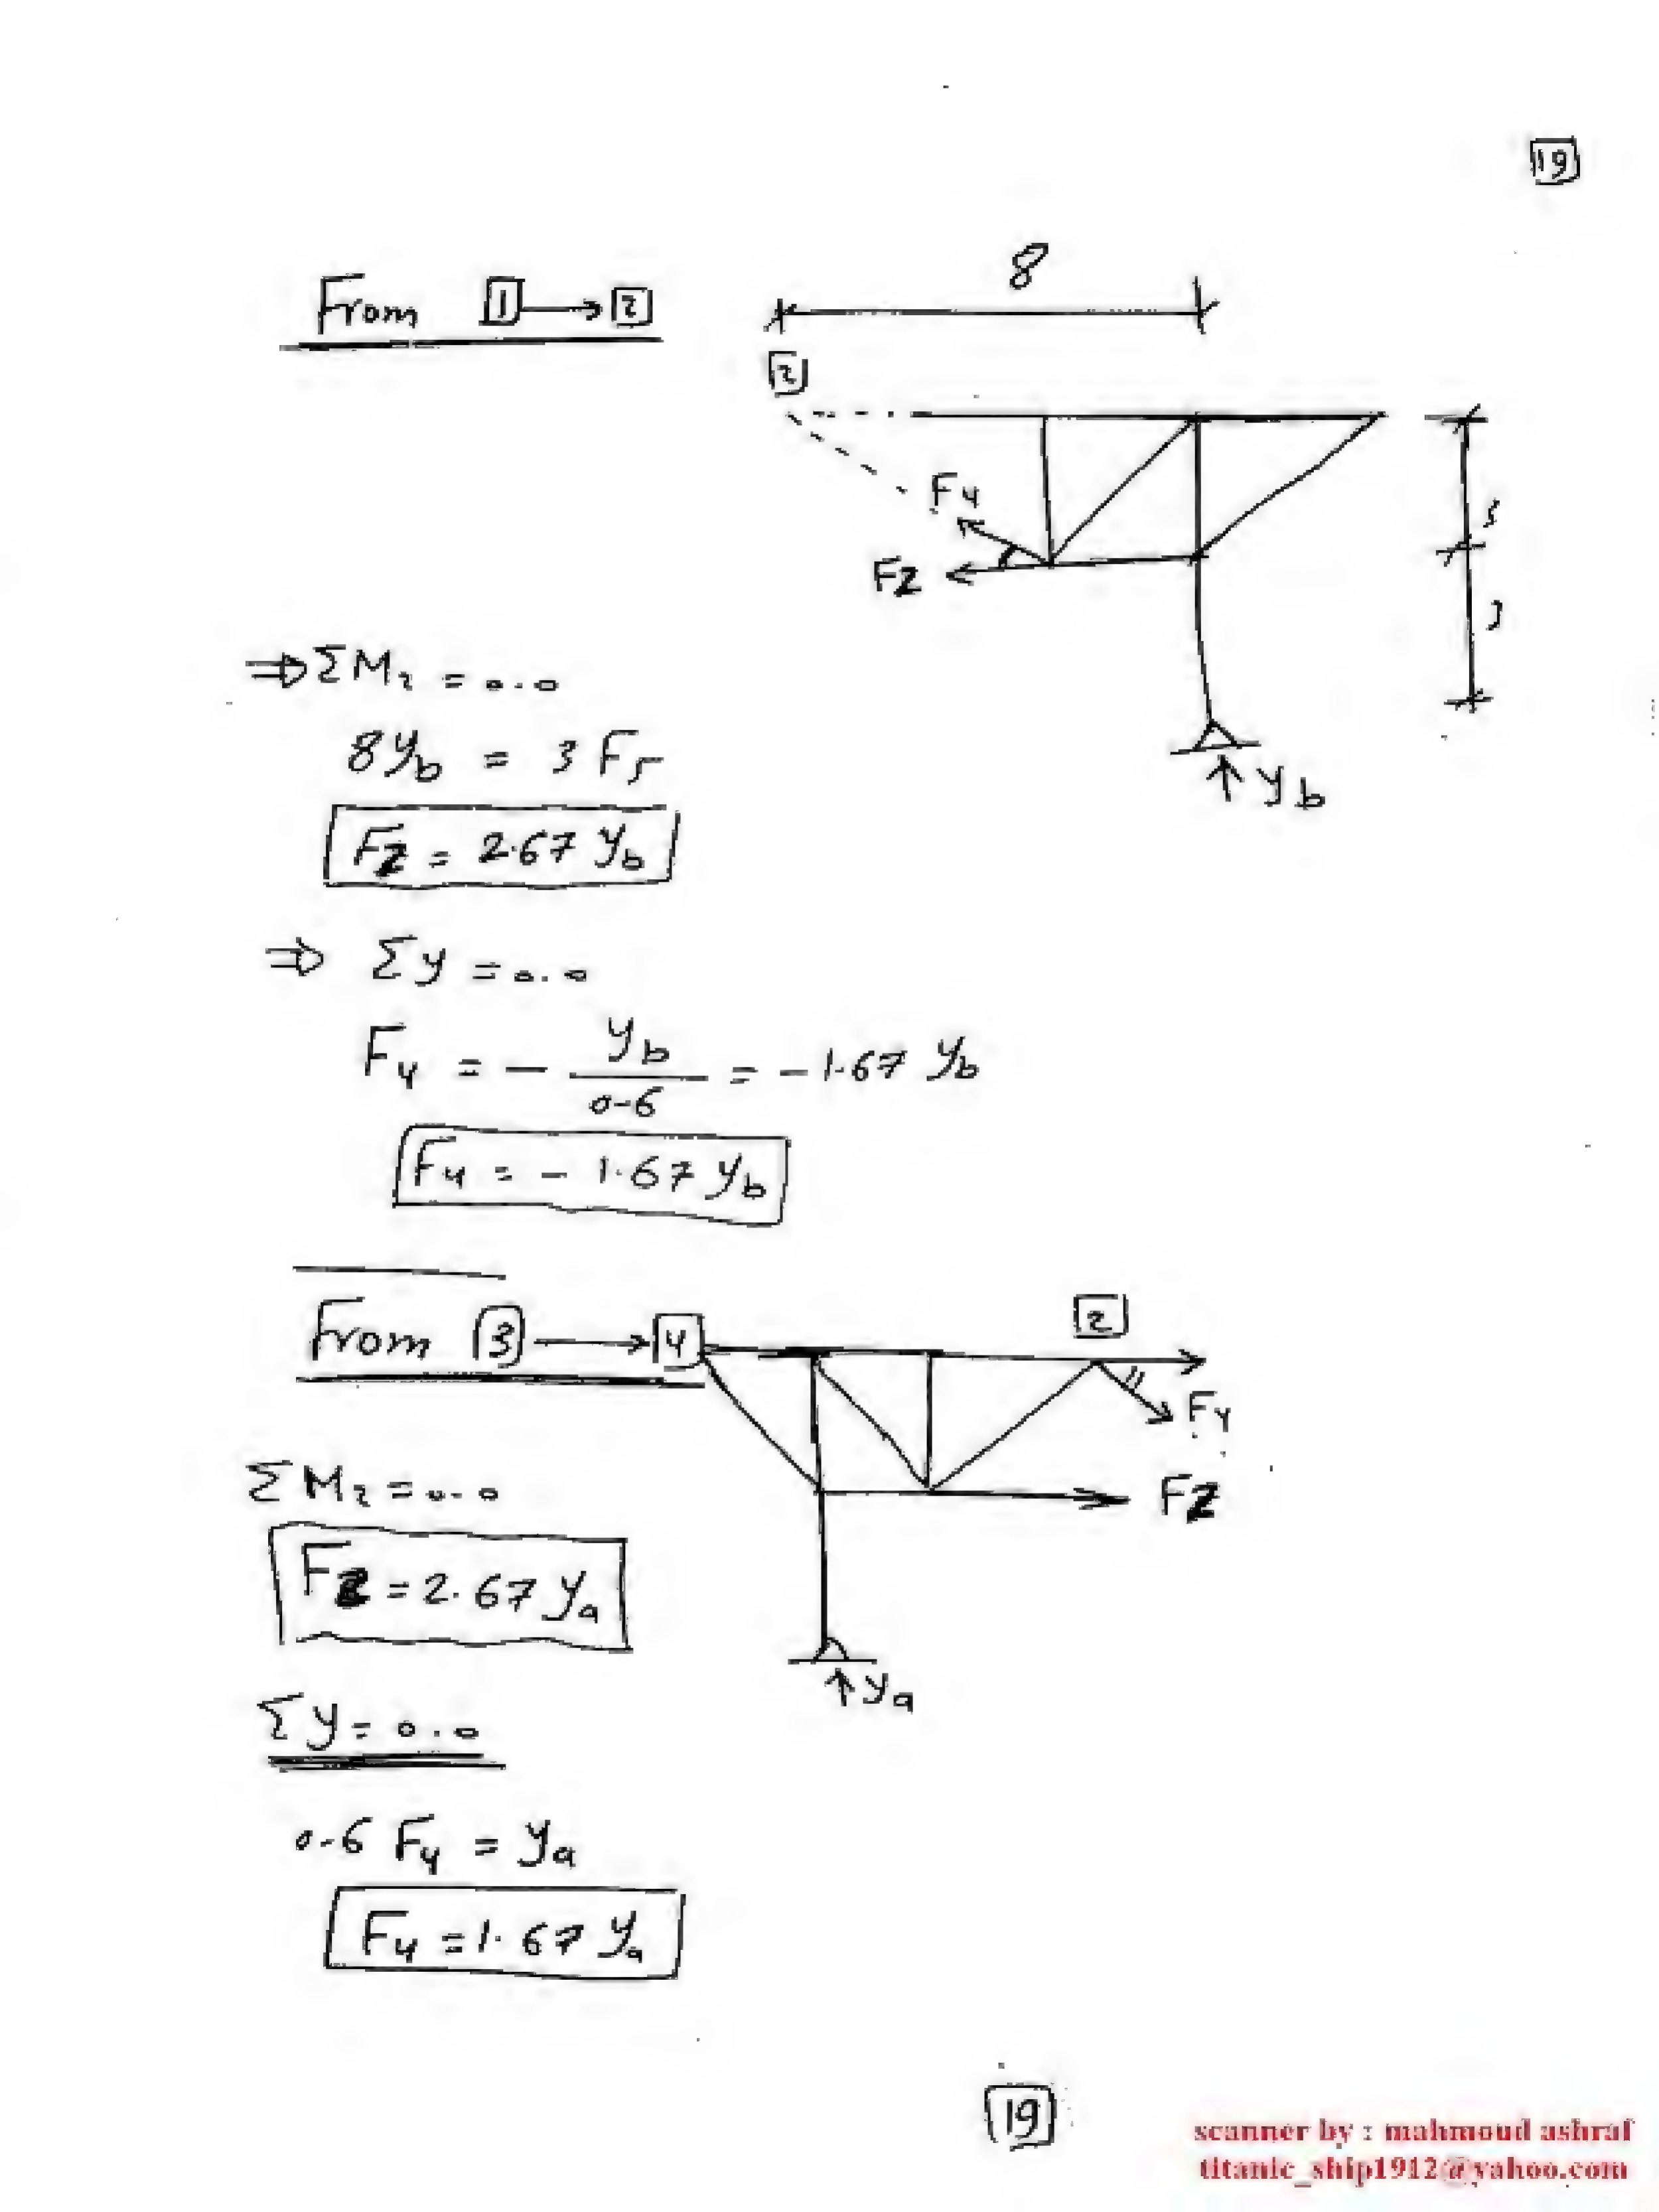 19
From 1 → 2
8
2
F4
Fz
3
3
yb
⇒ ΣM2 = 0.0
8yb = 3 F5
Fz = 2.67 yb
⇒ Σy = 0.0
F4 = - yb / 0.6 = - 1.67 yb
F4 = - 1.67 yb
From 3 → 4
2
F4
Fz
ya
ΣM2 = 0.0
Fz = 2.67 ya
Σy = 0.0
0.6 F4 = ya
F4 = 1.67 ya
19
scanner by : mahmoud ashraf
titanic_ship1912@yahoo.com